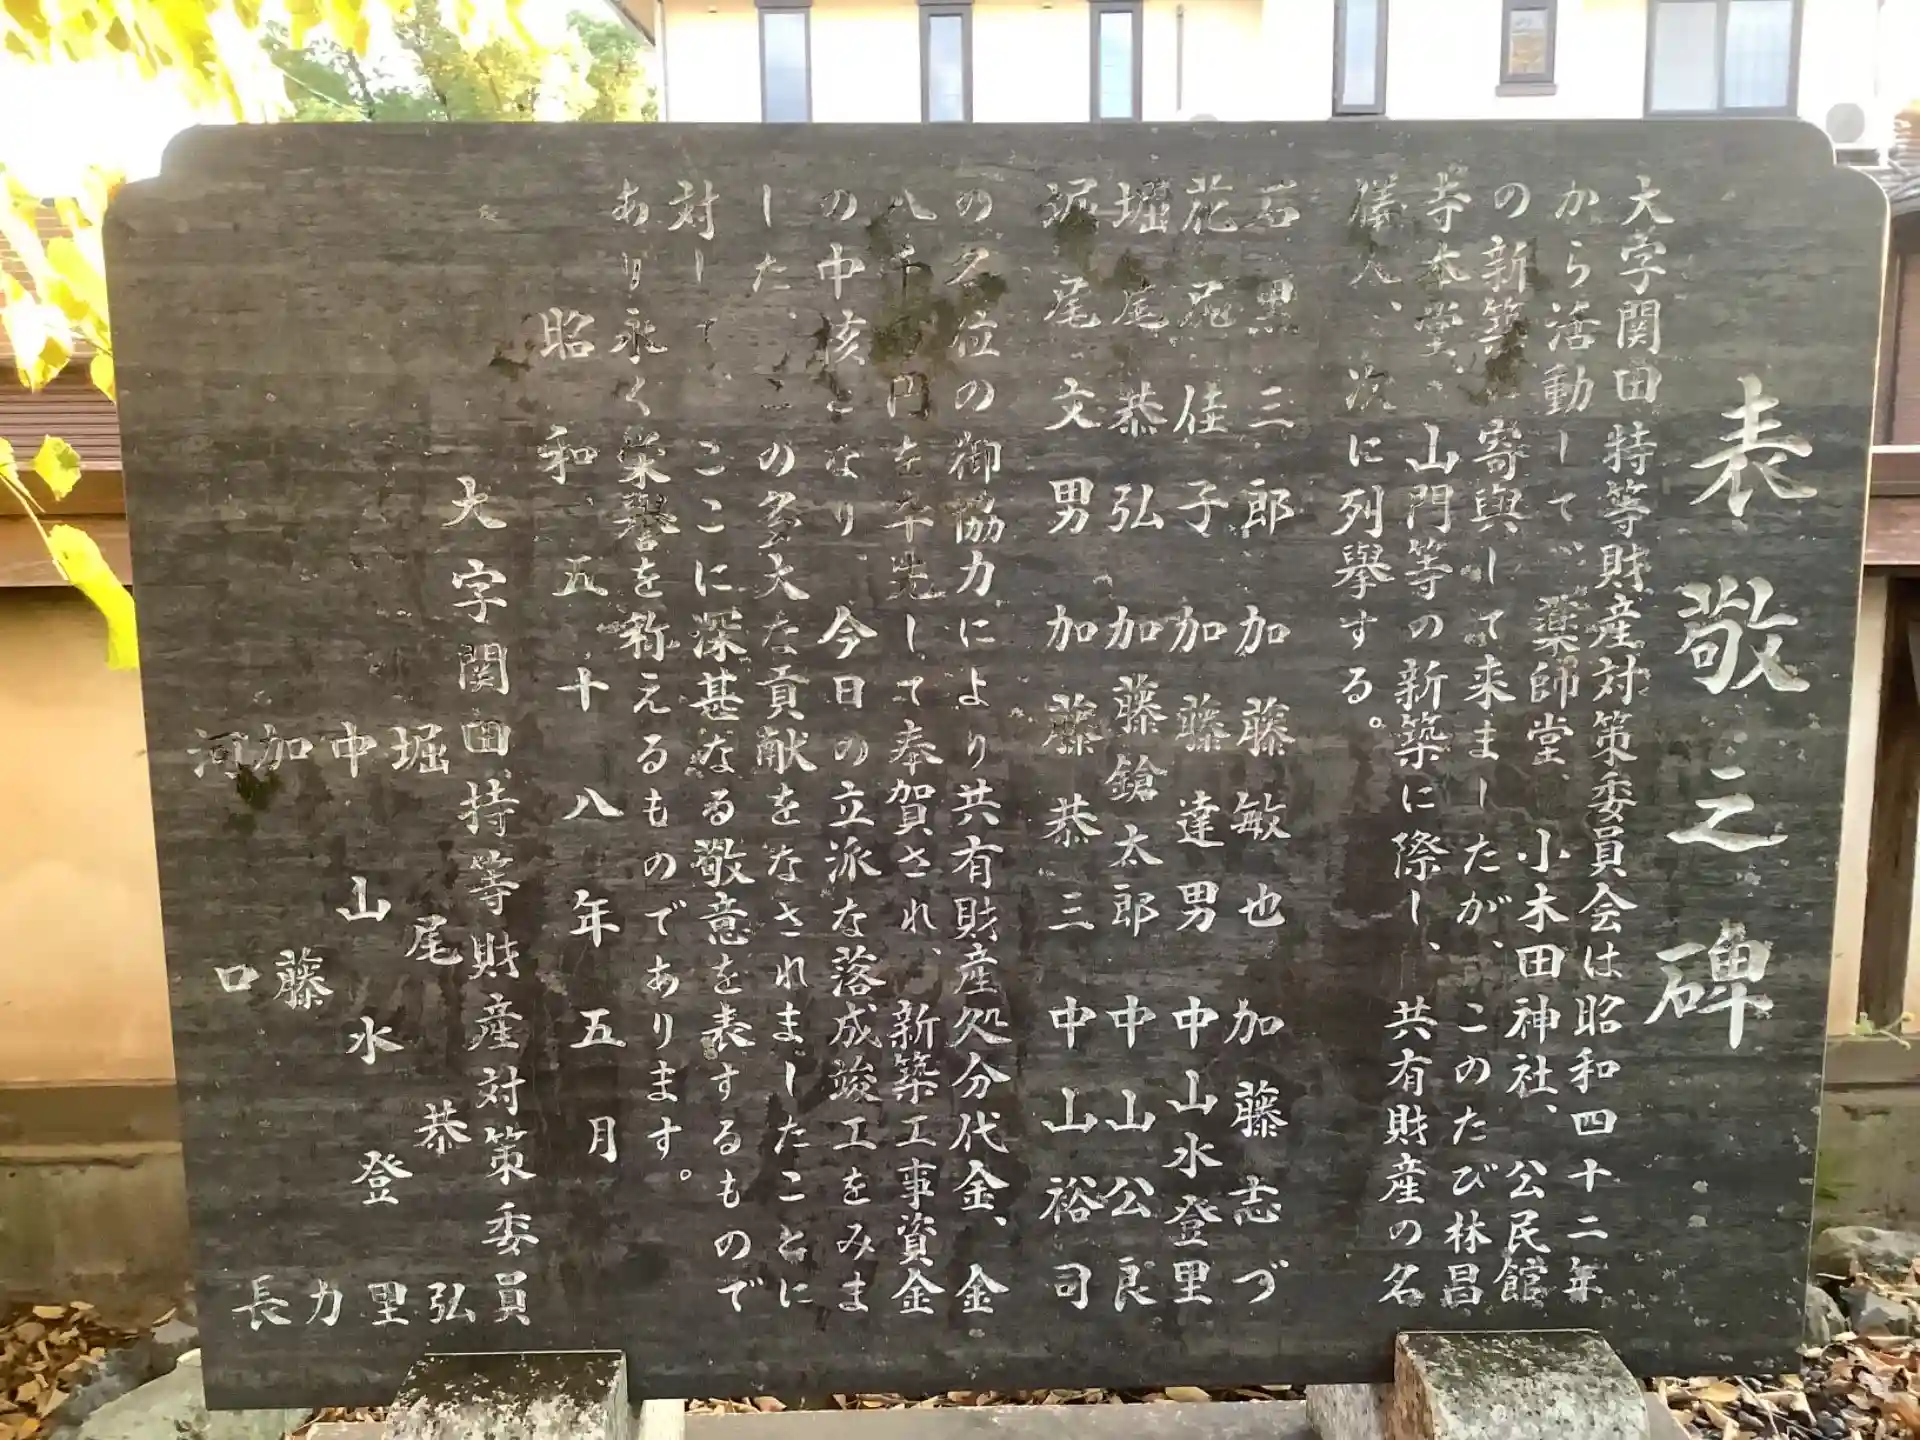 表敬之碑
大字関田特等財産対策委員会は昭和四十二年
から活動して、薬師堂、小木田神社、公民館
の新築に寄與して来ましたが、このたび林昌
寺本堂、山門等の新築に際し、共有財産の名
儀人、次に列擧する。
石黒三郎 加藤敏也 加藤志づ
花島佳子 加藤達男 中山水登里
堀尾恭弘 加藤鎗太郎 中山公良
堀尾文男 加藤恭三 中山裕司
の各位の御協力により共有財産処分代金、金
八千円を率先して奉賀され、新築工事資金
の中核となり、今日の立派な落成竣工をみま
した、この多大な貢献をなされましたことに
対して、ここに深甚なる敬意を表するもので
あり永く栄誉を称えるものであります。
昭和五十八年五月
大字関田特等財産対策委員
堀尾恭弘
中山水登里
加藤力
河口長